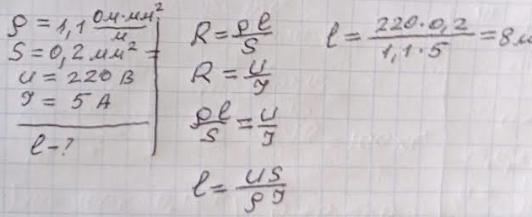 ρ = 1,1 Ом·мм²/м
S = 0,2 мм² =
U = 220 В
I = 5 А
l - ?
R = ρl/S
R = U/I
ρl/S = U/I
l = US/ρI
l = 220·0,2/1,1·5 = 8м